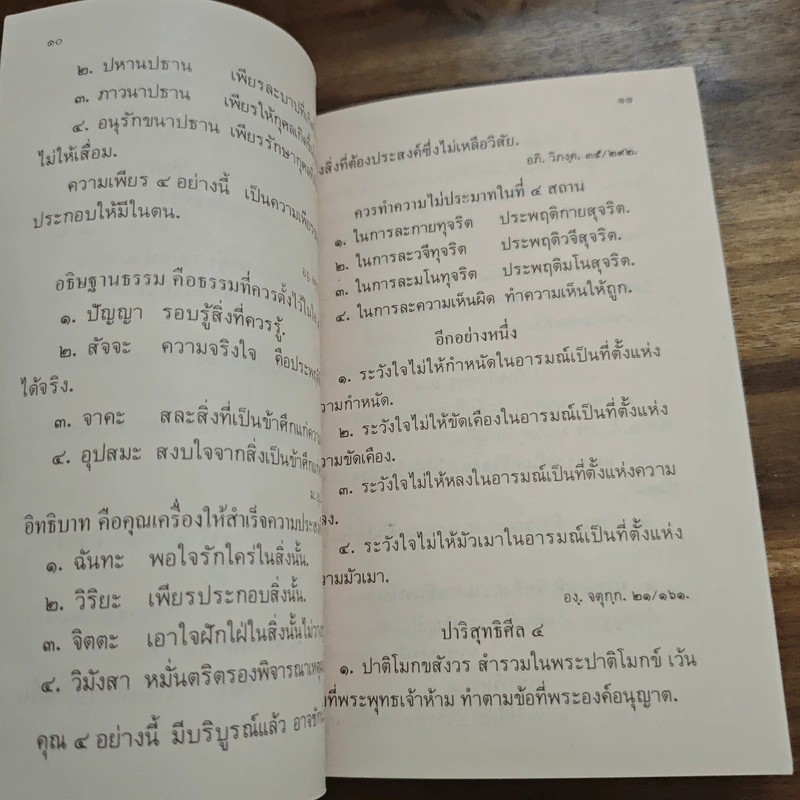 ๑๐
๒. ปหานปธาน เพียรละบาปที่เกิด
๓. ภาวนาปธาน เพียรให้กุศลเกิดขึ้น
๔. อนุรักขนาปธาน เพียรรักษากุศลที่
ไม่ให้เสื่อม.
ความเพียร ๔ อย่างนี้ เป็นความเพียร
ประกอบให้มีในตน.
อธิษฐานธรรม คือธรรมที่ควรตั้งไว้ใน
๑. ปัญญา รอบรู้สิ่งที่ควรรู้.
๒. สัจจะ ความจริงใจ คือประพฤติ
ได้จริง.
๓. จาคะ สละสิ่งที่เป็นข้าศึกแก่ความ
๔. อุปสมะ สงบใจจากสิ่งเป็นข้าศึกแก่
อิทธิบาท คือคุณเครื่องให้สำเร็จความประสงค์
๑. ฉันทะ พอใจรักใคร่ในสิ่งนั้น.
๒. วิริยะ เพียรประกอบสิ่งนั้น.
๓. จิตตะ เอาใจฝักใฝ่ในสิ่งนั้นไม่วาง
๔. วิมังสา หมั่นตริตรองพิจารณาเหตุผล
คุณ ๔ อย่างนี้ มีบริบูรณ์แล้ว อาจชัก
๑๑
งสิ่งที่ต้องประสงค์ซึ่งไม่เหลือวิสัย.
อภิ. วิภงฺค. ๓๕/๒๙๒.
ควรทำความไม่ประมาทในที่ ๔ สถาน
๑. ในการละกายทุจริต ประพฤติกายสุจริต.
๒. ในการละวจีทุจริต ประพฤติวจีสุจริต.
๓. ในการละมโนทุจริต ประพฤติมโนสุจริต.
๔. ในการละความเห็นผิด ทำความเห็นให้ถูก.
อีกอย่างหนึ่ง
๑. ระวังใจไม่ให้กำหนัดในอารมณ์เป็นที่ตั้งแห่ง
วามกำหนัด.
๒. ระวังใจไม่ให้ขัดเคืองในอารมณ์เป็นที่ตั้งแห่ง
วามขัดเคือง.
๓. ระวังใจไม่ให้หลงในอารมณ์เป็นที่ตั้งแห่งความ
ลง.
๔. ระวังใจไม่ให้มัวเมาในอารมณ์เป็นที่ตั้งแห่ง
วามมัวเมา.
องฺ. จตุกฺก. ๒๑/๑๖๑.
ปาริสุทธิศีล ๔
๑. ปาติโมกขสังวร สำรวมในพระปาติโมกข์ เว้น
อที่พระพุทธเจ้าห้าม ทำตามข้อที่พระองค์อนุญาต.